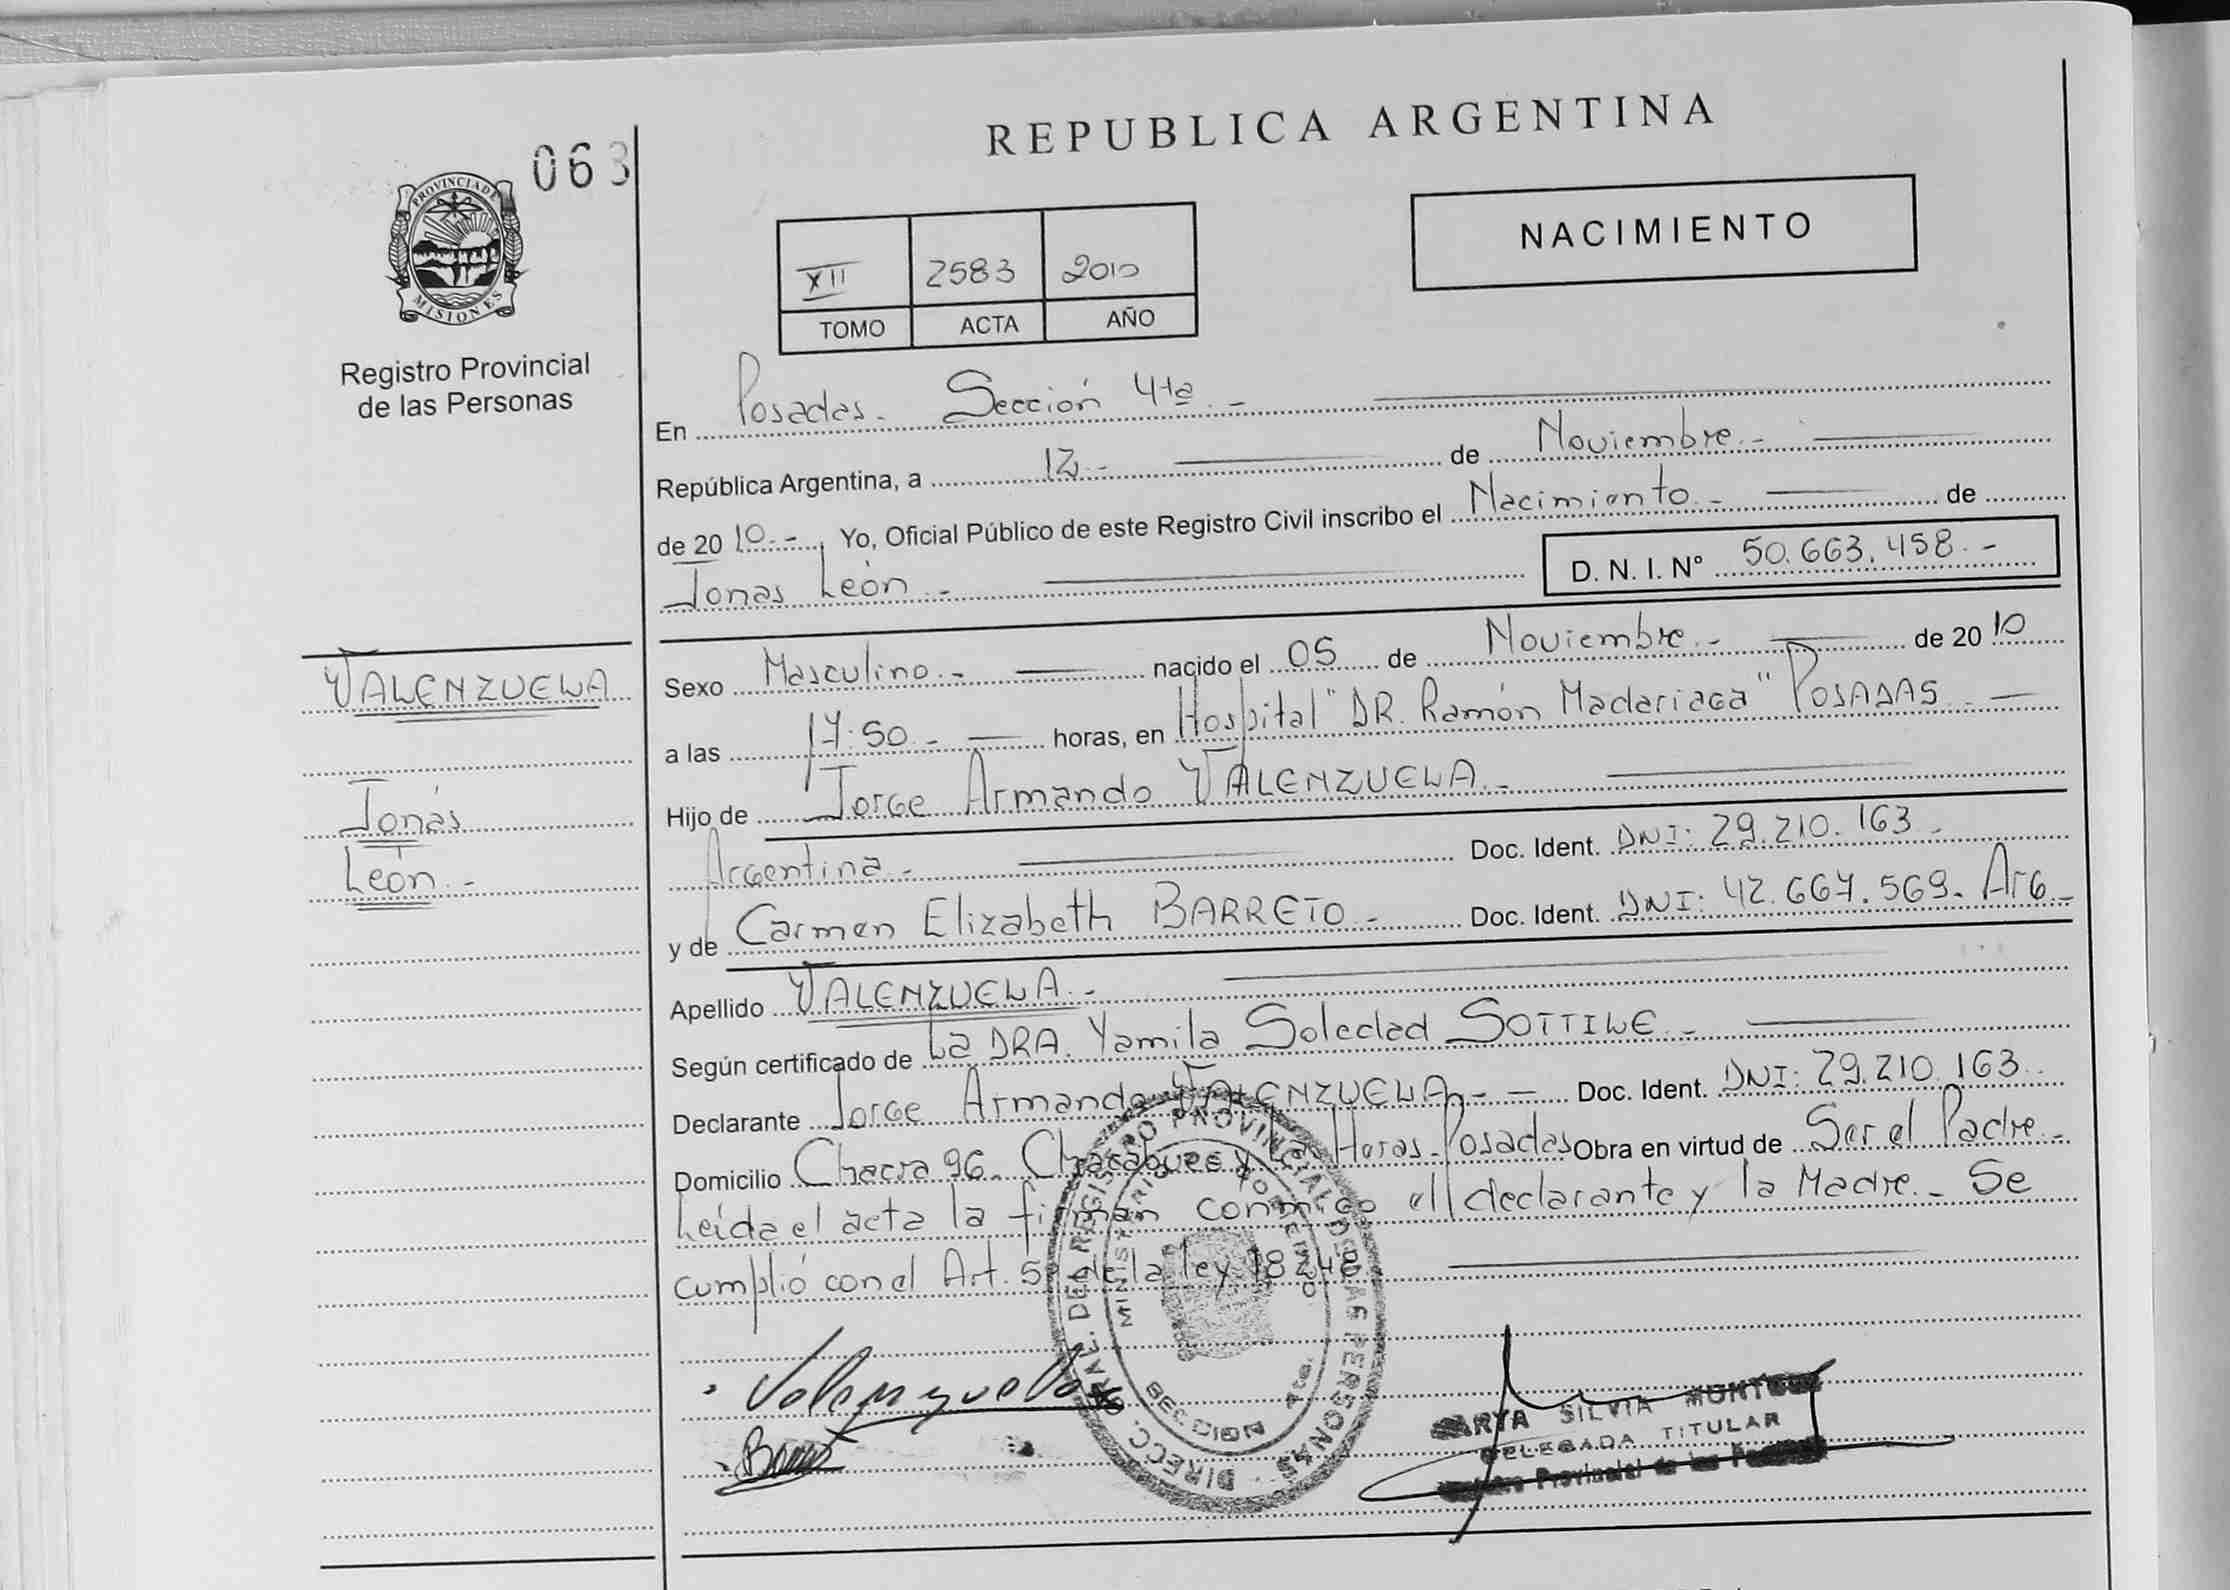 REPUBLICA ARGENTINA
063
PROVINCIA DE MISIONES
Registro Provincial
de las Personas
NACIMIENTO
XII 2583 2010
TOMO ACTA AÑO
En Posadas. Sección 4ta.-
República Argentina, a 12.- de Noviembre.-
de 2010.-, Yo, Oficial Público de este Registro Civil inscribo el Nacimiento.- de
Jonas León.- D. N. I. Nº 50.663.458.-
VALENZUELA
Jonás
León.-
Sexo Masculino.- nacido el 05 de Noviembre.- de 2010
a las 17:50.- horas, en Hospital "DR. Ramón Madariaga" POSADAS.-
Hijo de Jorge Armando VALENZUELA.-
Argentina.- Doc. Ident. DNI: 29.210.163.-
y de Carmen Elizabeth BARRETO.- Doc. Ident. DNI: 42.667.569. Arg.-
Apellido VALENZUELA.-
Según certificado de La DRA. Yamila Soledad SOTTILE.-
Declarante Jorge Armando VALENZUELA.- Doc. Ident. DNI: 29.210.163.
Domicilio Chacra 96. y Las Heras. Posadas Obra en virtud de Ser el Padre.-
Leída el acta la firman conmigo el declarante y la Madre.- Se
cumplió con el Art. 5º de la ley 18248
DIRECC. GRAL. DEL REGISTRO PROVINCIAL DE LAS PERSONAS
MINISTERIO DE GOBIERNO
Valenzuela
SILVIA
DELEGADA TITULAR
Provincial de las